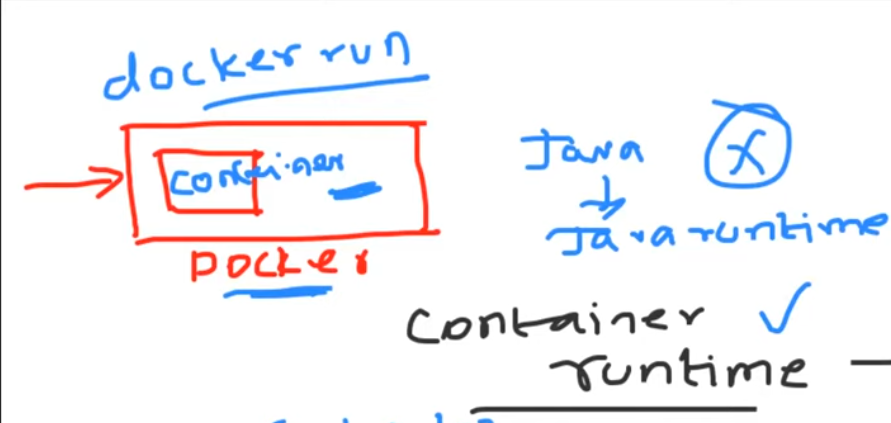 docker run
container
Docker
Java
X
Java runtime
container
runtime